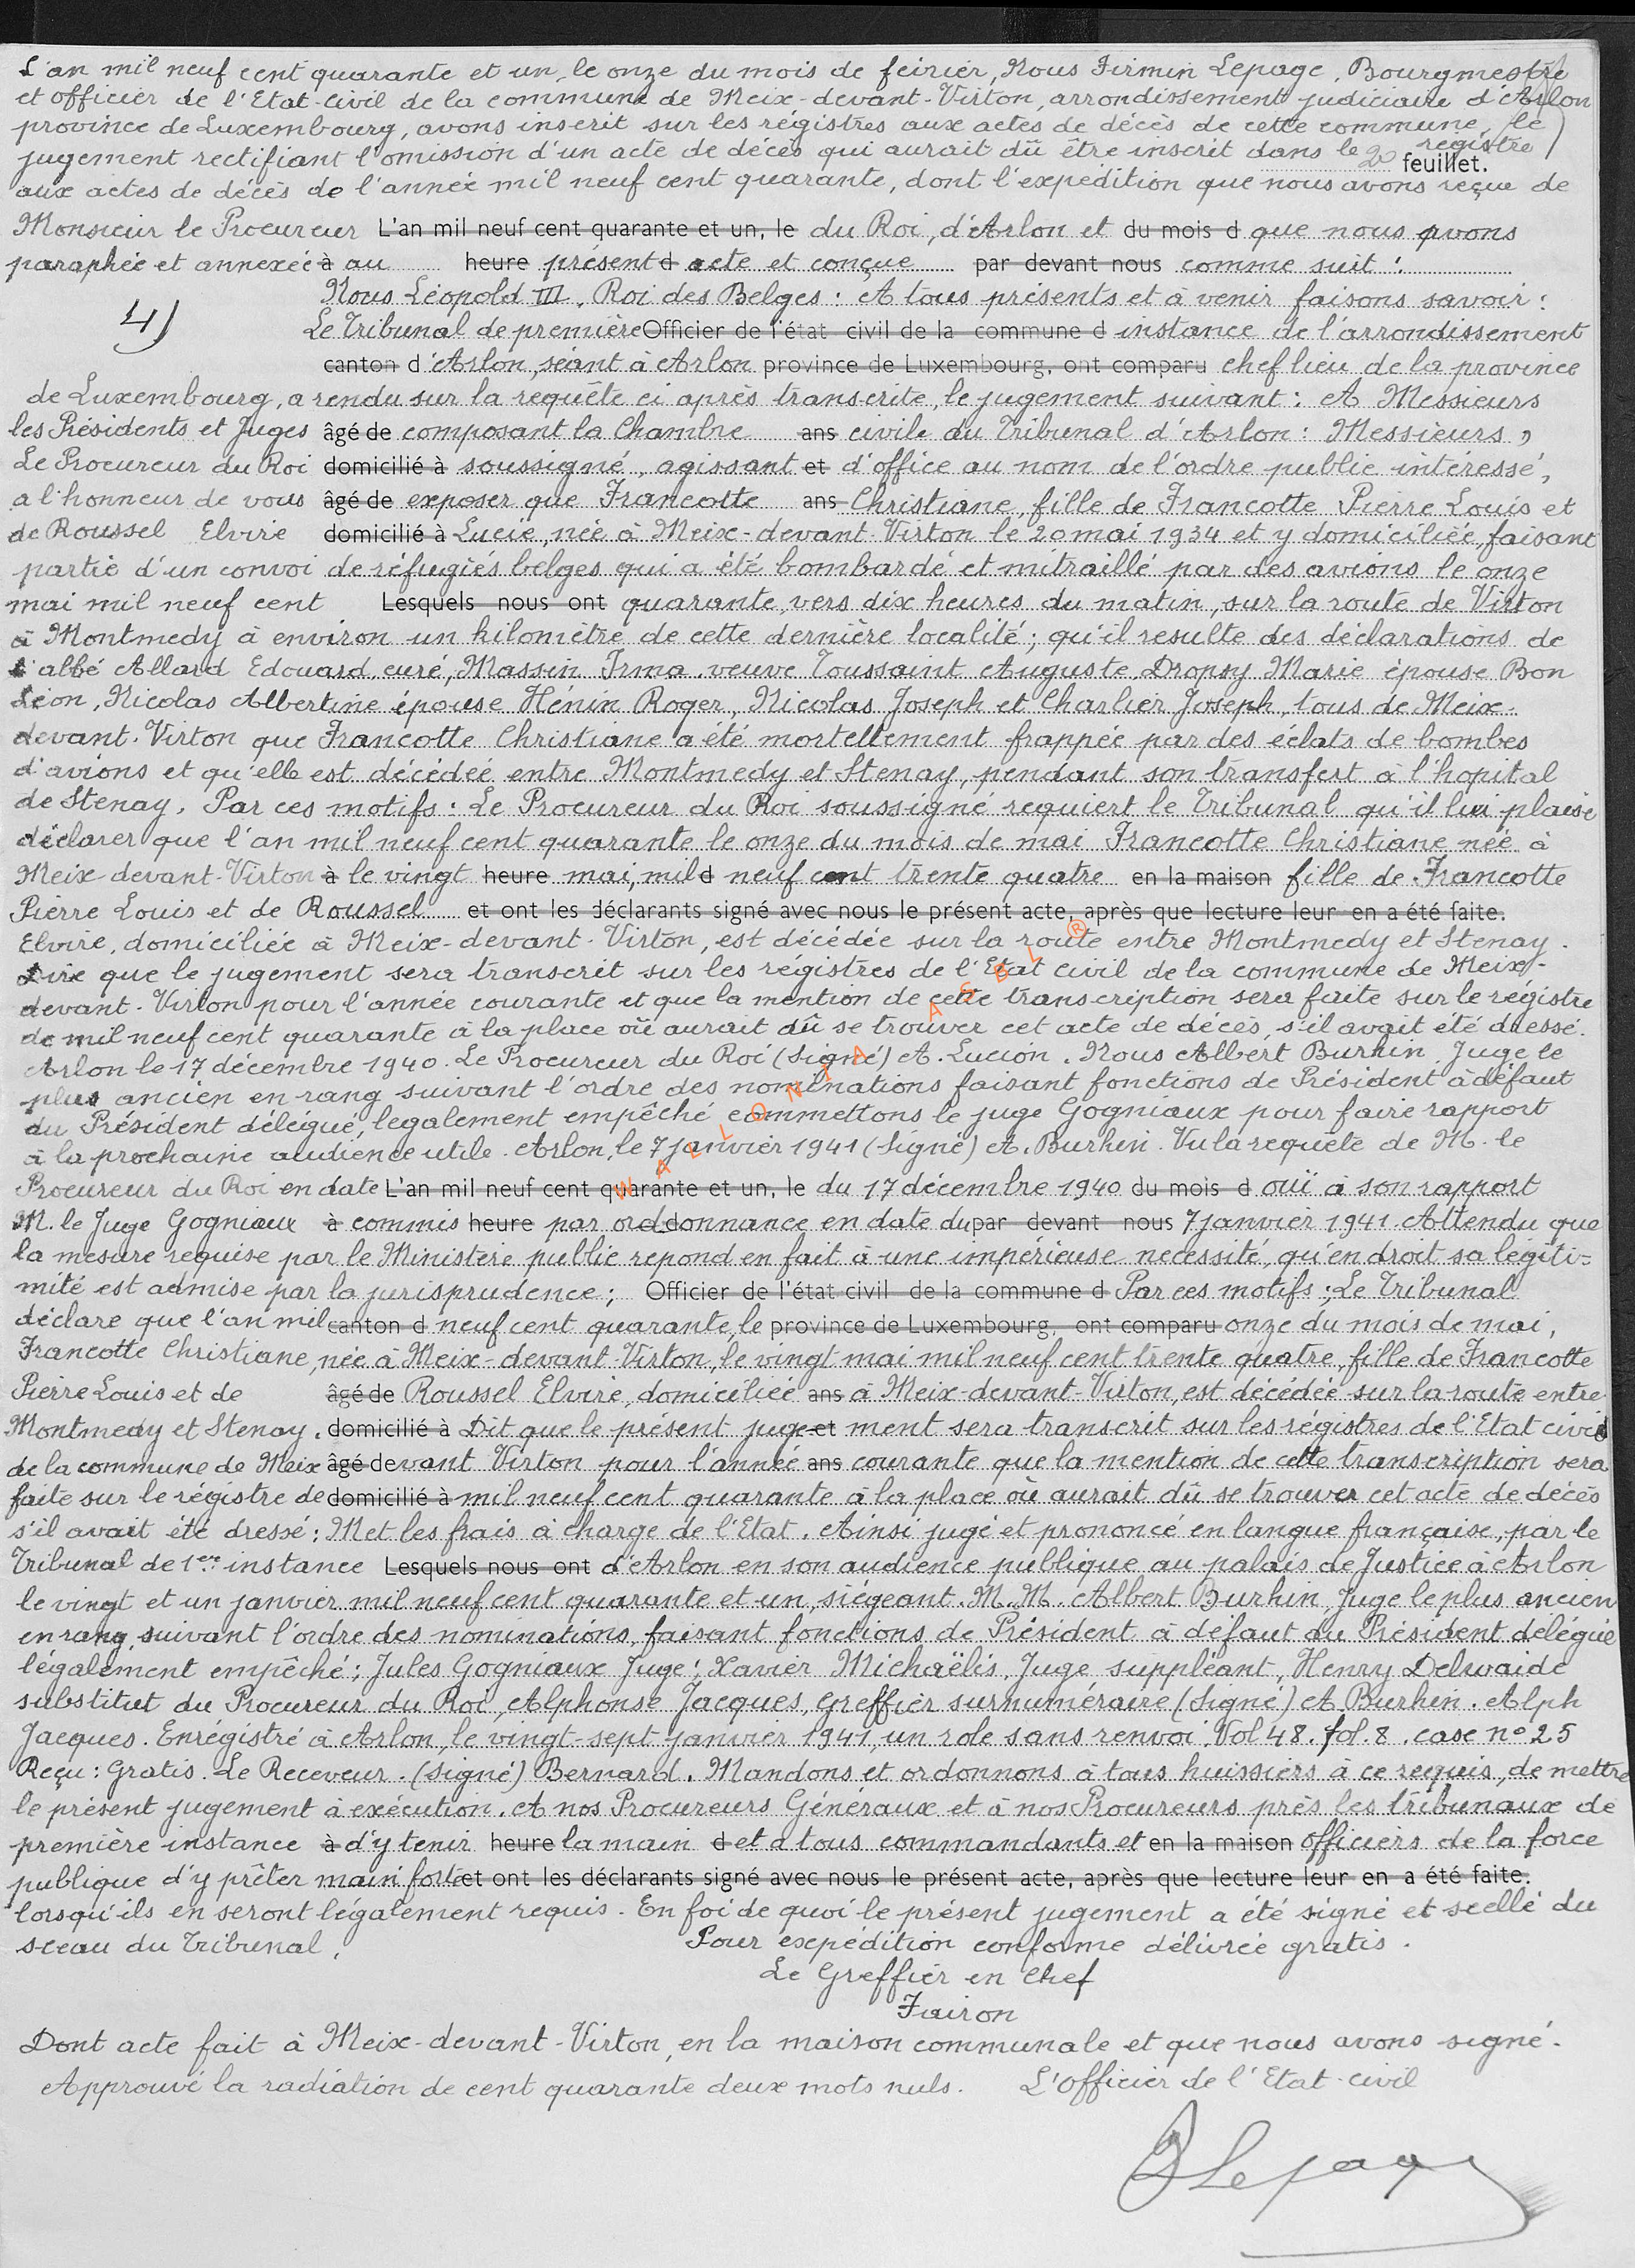 L'an mil neuf cent quarante et un, le onze du mois de feivrier, Nous Firmin Lepage, Bourgmestre
et officier de l'Etat-Civil de la commune de Meix-devant-Virton, arrondissement judiciaire d'Arlon
province de Luxembourg, avons inscrit sur les régistres aux actes de décès de cette commune, le
jugement rectifiant l'omission d'un acte de décès qui aurait dû être inscrit dans le registre
2e feuillet.
aux actes de décès de l'année mil neuf cent quarante, dont l'expedition que nous avons reçue de
Monsieur le Procureur L'an mil neuf cent quarante et un, le du Roi, d'Arlon et du mois d que nous avons
paraphée et annexée à au heure présent d acte et conçue par devant nous comme suit :
Nous Léopold III, Roi des Belges : A tous présents et à venir faisons savoir :
4)
Le Tribunal de première Officier de l'état civil de la commune d instance de l'arrondissement
canton d'Arlon, séant à Arlon province de Luxembourg, ont comparu chef lieu de la province
de Luxembourg, a rendu sur la requête ci après transcrite, le jugement suivant : A Messieurs
les Présidents et Juges âgé de composant la Chambre ans civile du Tribunal d'Arlon : Messieurs,
Le Procureur du Roi domicilié à soussigné, agissant et d'office au nom de l'ordre public intéressé,
a l'honneur de vous âgé de exposer que Francotte ans Christiane, fille de Francotte Pierre Louis et
de Roussel Elvire domicilié à Lucie, née à Meix-devant-Virton le 20 mai 1934 et y domiciliée, faisant
partie d'un convoi de réfugiés belges qui a été bombardé et mitraillé par des avions le onze
mai mil neuf cent Lesquels nous ont quarante, vers dix heures du matin, sur la route de Virton
à Montmedy à environ un kilomètre de cette dernière localité ; qu'il resulte des déclarations de
l'abbé Allard Edouard, curé, Massin Irma, veuve Toussaint Auguste, Dropsy Marie épouse Bon
Léon, Nicolas Albertine épouse Hénin Roger, Nicolas Joseph et Charlier Joseph, tous de Meix-
devant-Virton que Francotte Christiane a été mortellement frappée par des éclats de bombes
d'avions et qu'elle est décédée entre Montmedy et Stenay, pendant son transfert à l'hopital
de Stenay. Par ces motifs : Le Procureur du Roi soussigné requiert le Tribunal qu'il lui plaise
déclarer que l'an mil neuf cent quarante le onze du mois de mai Francotte Christiane née à
Meix-devant-Virton à le vingt heure mai, mil d neuf cent trente quatre en la maison fille de Francotte
Pierre Louis et de Roussel et ont les déclarants signé avec nous le présent acte, après que lecture leur en a été faite.
Elvire, domiciliée à Meix-devant-Virton, est décédée sur la route entre Montmedy et Stenay.
Dire que le jugement sera transcrit sur les régistres de l'Etat civil de la commune de Meix-
devant-Virton pour l'année courante et que la mention de cette transcription sera faite sur le régistre
de mil neuf cent quarante à la place où aurait dû se trouver cet acte de décès, s'il avait été dressé.
Arlon le 17 décembre 1940. Le Procureur du Roi (Signé) A. Lucion. Nous Albert Burhin, Juge le
plus ancien en rang suivant l'ordre des nominations faisant fonctions de Président à défaut
du Président délégué, legalement empêché commettons le juge Gogniaux pour faire rapport
à la prochaine audience utile. Arlon, le 7 janvier 1941 (Signé) A. Burhin. Vu la requête de M. le
Procureur du Roi en date L'an mil neuf cent quarante et un, le du 17 décembre 1940 du mois d ouï à son rapport
M. le Juge Gogniaux à commis heure par ord d donnance en date du par devant nous 7 janvier 1941. Attendu que
la mesure requise par le Ministère public repond en fait à une impérieuse necessité, qu'en droit sa légiti-
mité est admise par la jurisprudence ; Officier de l'état civil de la commune d Par ces motifs ; Le Tribunal
déclare que l'an mil canton d neuf cent quarante, le province de Luxembourg, ont comparu onze du mois de mai,
Francotte Christiane, née à Meix-devant-Virton, le vingt mai mil neuf cent trente quatre, fille de Francotte
Pierre Louis et de âgé de Roussel Elvire, domiciliée ans à Meix-devant-Virton, est décédée sur la route entre
Montmedy et Stenay. domicilié à Dit que le présent juge et ment sera transcrit sur les régistres de l'Etat civil
de la commune de Meix âgé devant Virton pour l'année ans courante que la mention de cette transcription sera
faite sur le régistre de domicilié à mil neuf cent quarante à la place où aurait dû se trouver cet acte de décès
s'il avait été dressé : Met les frais à charge de l'Etat. Ainsi jugé et prononcé en langue française, par le
Tribunal de 1ere instance Lesquels nous ont d'Arlon en son audience publique au palais de Justice à Arlon
le vingt et un janvier mil neuf cent quarante et un, siégeant. M.M. Albert Burhin, Juge le plus ancien
en rang suivant l'ordre des nominations, faisant fonctions de Président à défaut du Président délégué
légalement empêché ; Jules Gogniaux Juge ; Xavier Michaëlis, Juge suppléant, Henry Delwaide
substitut du Procureur du Roi, Alphonse Jacques, Greffier surnuméraire (Signé) A. Burhin. Alph
Jacques. Enrégistré à Arlon, le vingt-sept janvier 1941, un role sans renvoi. Vol 48. fol. 8. case n° 25
Reçu : Gratis. Le Receveur. (Signé) Bernard. Mandons et ordonnons à tous huissiers à ce requis, de mettre
le présent jugement à exécution. A nos Procureurs Généraux et à nos Procureurs près les tribunaux de
première instance à d'y tenir heure la main d et à tous commandants et en la maison officiers de la force
publique d'y prêter main forte et ont les déclarants signé avec nous le présent acte, après que lecture leur en a été faite.
lorsqu'ils en seront légalement requis. En foi de quoi le présent jugement a été signé et scellé du
sceau du Tribunal.
Pour expédition conforme délivrée gratis.
Le Greffier en Chef
Fairon
Dont acte fait à Meix-devant-Virton, en la maison communale et que nous avons signé.
Approuvé la radiation de cent quarante deux mots nuls. L'Officier de l'Etat-civil
F Lepage
WALLONIA ASBL ®